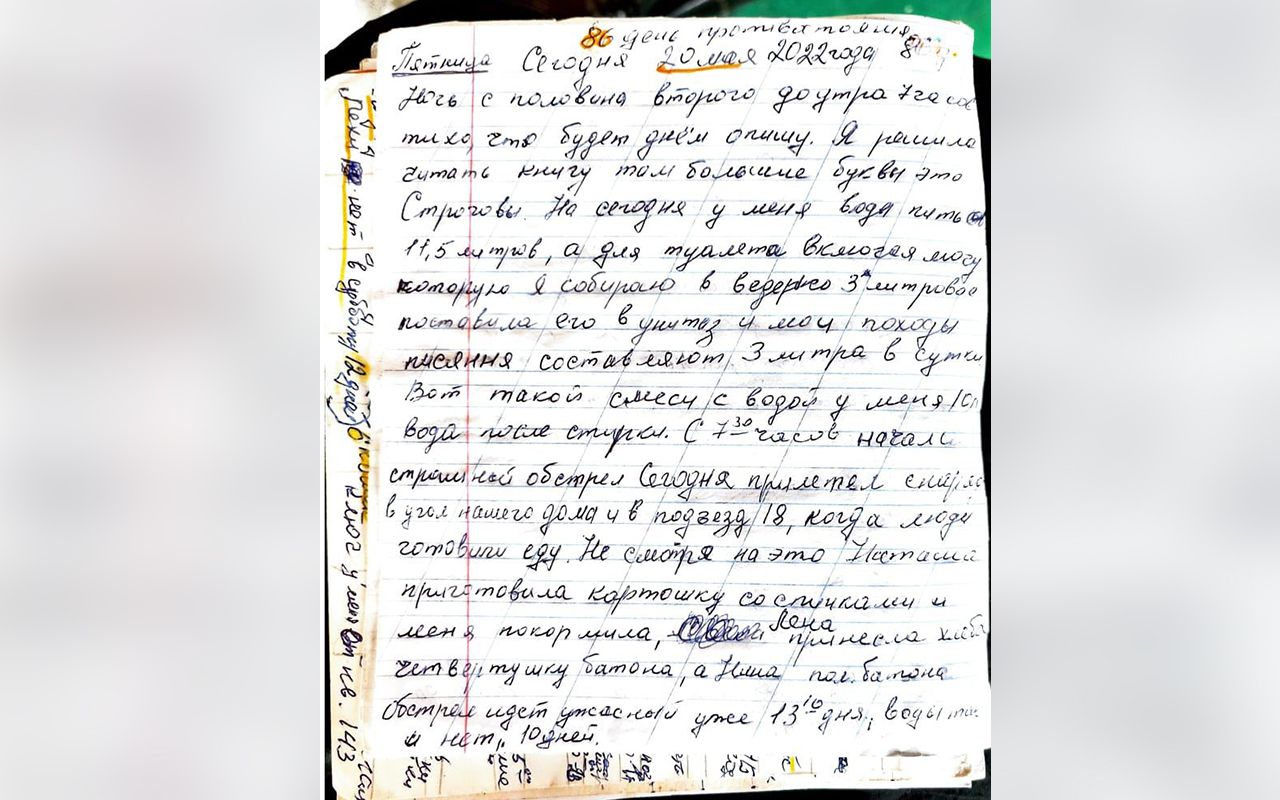 86 день противостояния
Пятница Сегодня 20 мая 2022 года
Ночь с половина второго до утра 7 часов
тихо, что будет днём опишу. Я решила
читать книгу там большие буквы это
Строговы. На сегодня у меня вода пить
11,5 литров, а для туалета включая мочу
которую Я собираю в ведерко 3х литровое
поставила его в унитаз и мои походы
писяння составляют 3 литра в сутки
Вот такой смеси с водой у меня
вода после стирки. С 7 30 часов начали
страшный обстрел Сегодня прилетел снаряд
в угол нашего дома и в подъезд 18, когда люди
готовили еду. Не смотря на это Наташа
приготовила картошку со спичками и
меня покормила, Лена принесла хлеба
четвертушку батона, а Нина пол.батона
Обстрел идет ужасный уже 13 10 дня, воды так
и нет, 10 дней.
нет в субботу ключ у меня от кв. 143